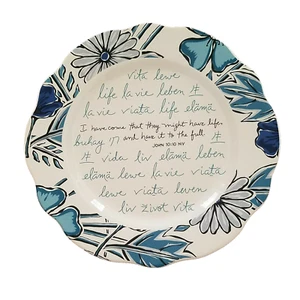 vita lewe
life la vie leben 生
la vie viata life elämä
I have come that they might have life,
buhay 카 and have it to the full.
JOHN 10:10 NIV
生 vida liv elämä leben
elämä lewe la vie viata
lewe viata leven
liv život vita